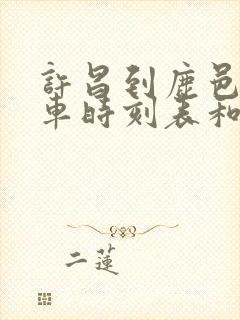 許昌到鹿邑
車時刻表和
二蓮